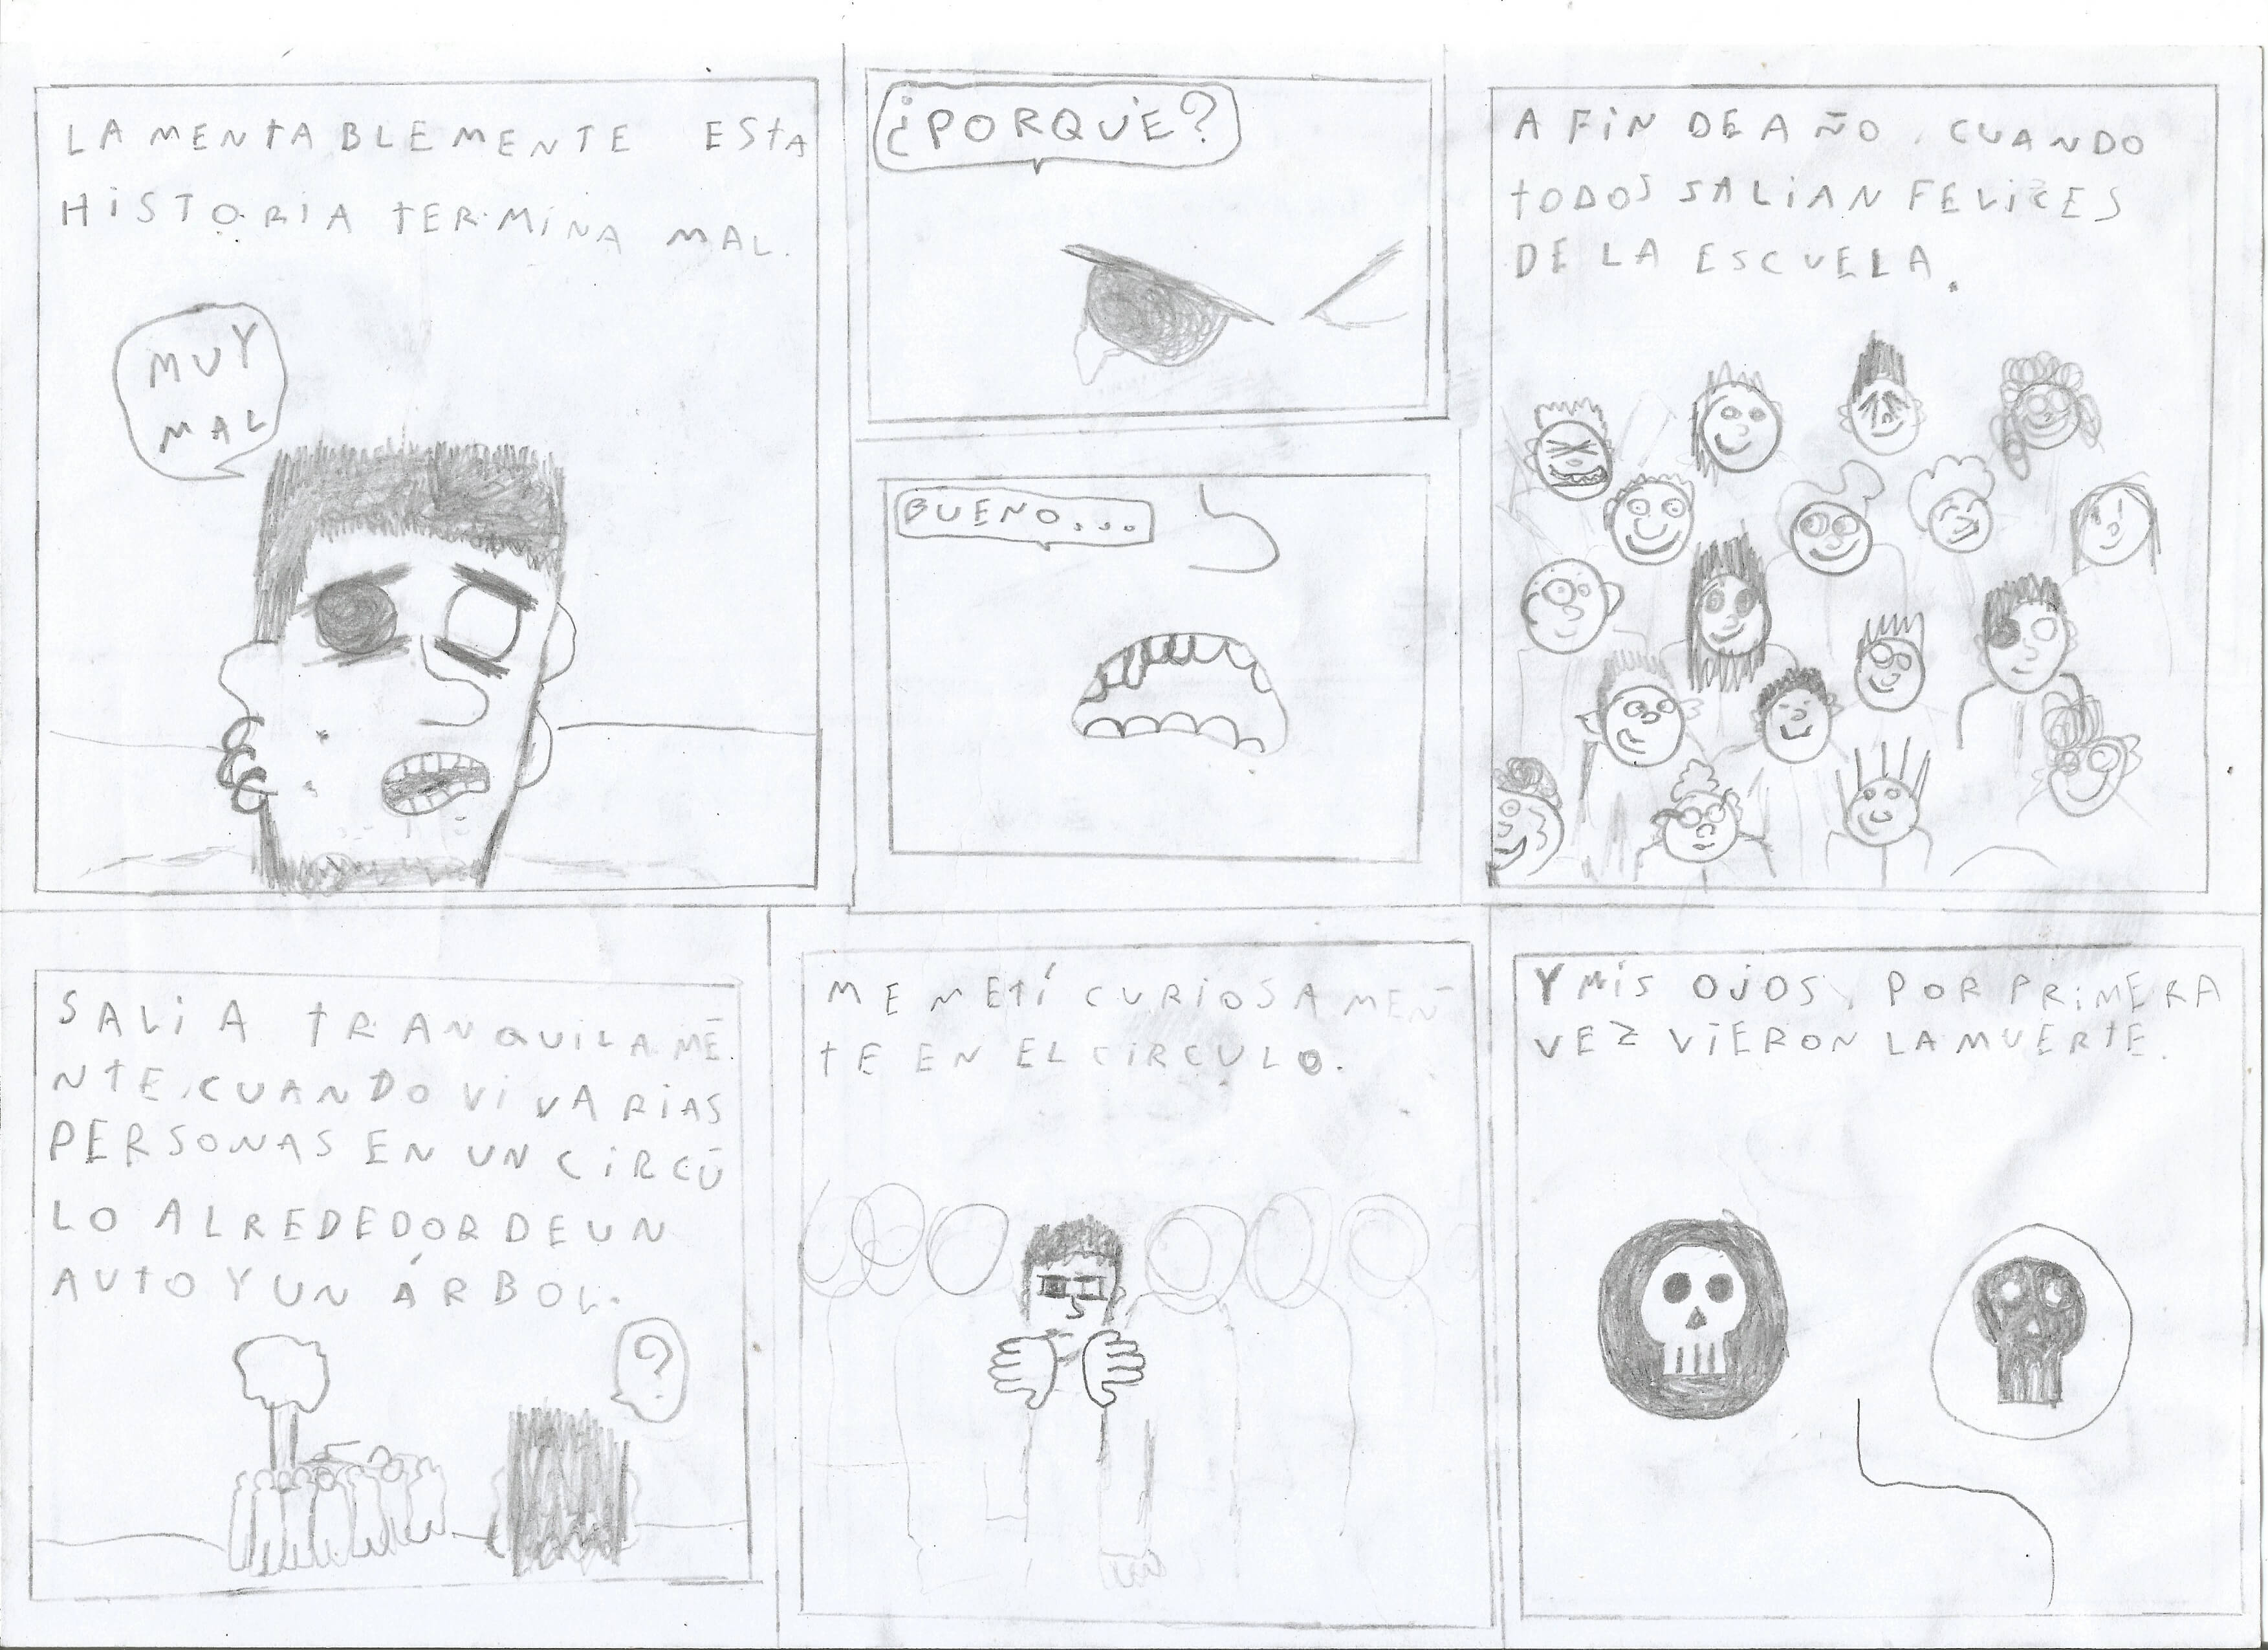 LAMENTABLEMENTE ESTA
HISTORIA TERMINA MAL.
MUY
MAL
¿PORQUÉ?
BUENO...
A FIN DE AÑO, CUANDO
TODOS SALIAN FELICES
DE LA ESCUELA.
SALIA TRANQUILAME
NTE, CUANDO VI VARIAS
PERSONAS EN UN CIRCU
LO ALREDEDOR DE UN
AUTO Y UN ÁRBOL.
?
ME METÍ CURIOSAMEN
TE EN EL CIRCULO.
Y MIS OJOS, POR PRIMERA
VEZ VIERON LA MUERTE.